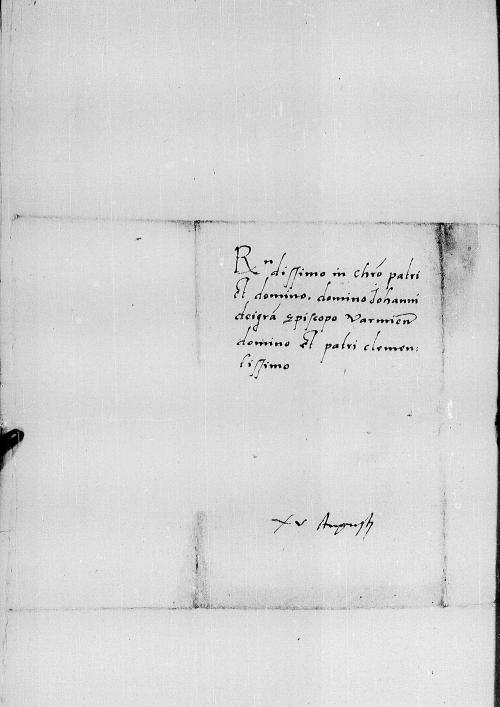 Rndissimo in Chro patri
Et domino. domino Johanni
dei gra Episcopo Varmien
domino Et patri clemen:
tissimo
xv Augusti